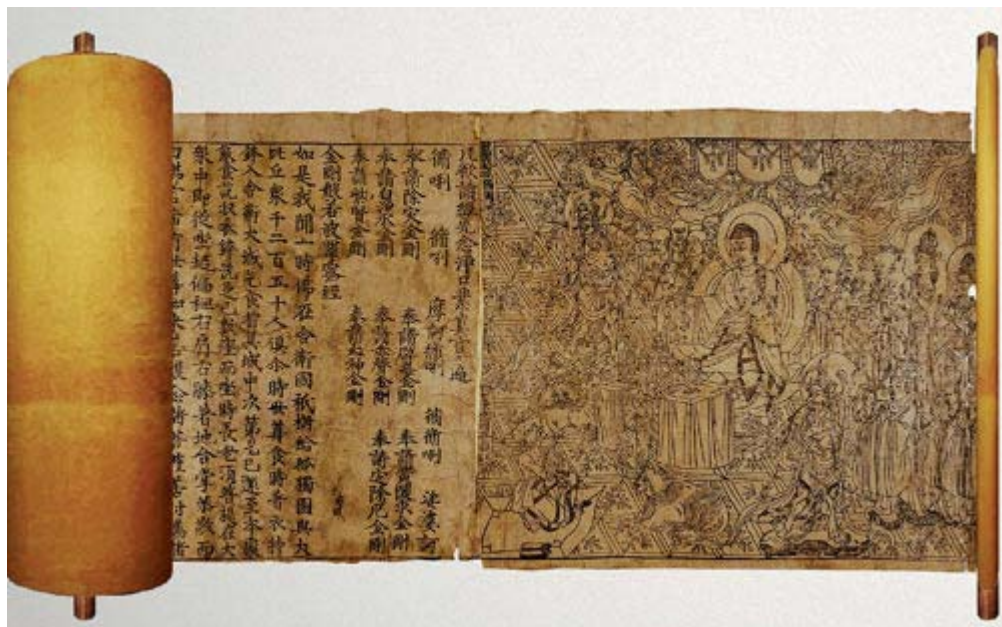 凡欲讀經先念淨口業真言一遍
脩唎 脩唎 摩訶脩唎 脩脩唎 娑婆訶
奉請除灾金剛 奉請辟毒金剛 奉請黃隨求金剛
奉請白淨水金剛 奉請赤聲金剛 奉請定除厄金剛
奉請紫賢金剛 奉請大神金剛
金剛般若波羅蜜經
如是我聞一時佛在舍衛國祇樹給孤獨園與大
比丘衆千二百五十人俱尒時世尊食時著衣持
鉢入舍衛大城乞食於其城中次第乞已還至本處
飯食訖收衣鉢洗足已敷座而坐時長老須菩提在大
衆中即從座起偏袒右肩右膝著地合掌恭敬而